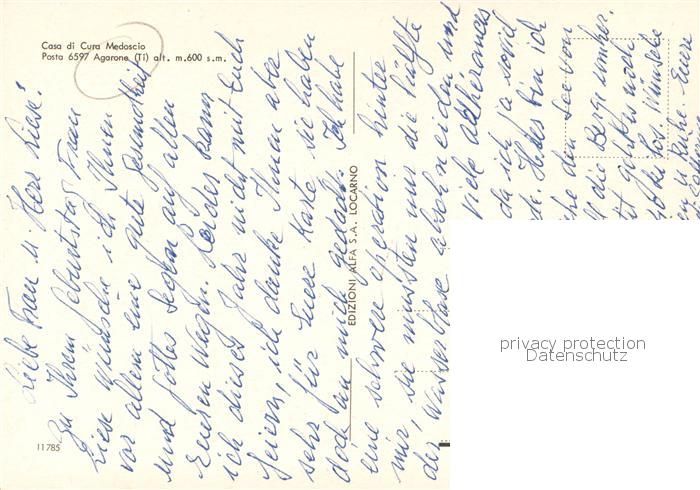 Casa di Cura Medoscio
Posta 6597 Agarone (Ti) alt. m. 600 s.m.
EDIZIONI ALFA S.A. LOCARNO
11785
privacy protection
Datenschutz
Liebe Frau u Herr Liese!
Zu Ihrem Geburtstag Frau
Liese wünsche ich Ihnen
vor allem eine gute Gesundheit
und Gottes Segen auf allen
Wegen. Leider kann
ich dieses Jahr nicht mit Euch
feiern, ich danke Ihnen aber
sehr für Eure Karte, sie haben
doch an mich gedacht. Ich habe
eine schwere Operation hinter
mir, sie mussten mir die Hälfte
der Wasserblase abschneiden und
viele
da ich ja soviel
bin ich
den See von
die Berge umher.